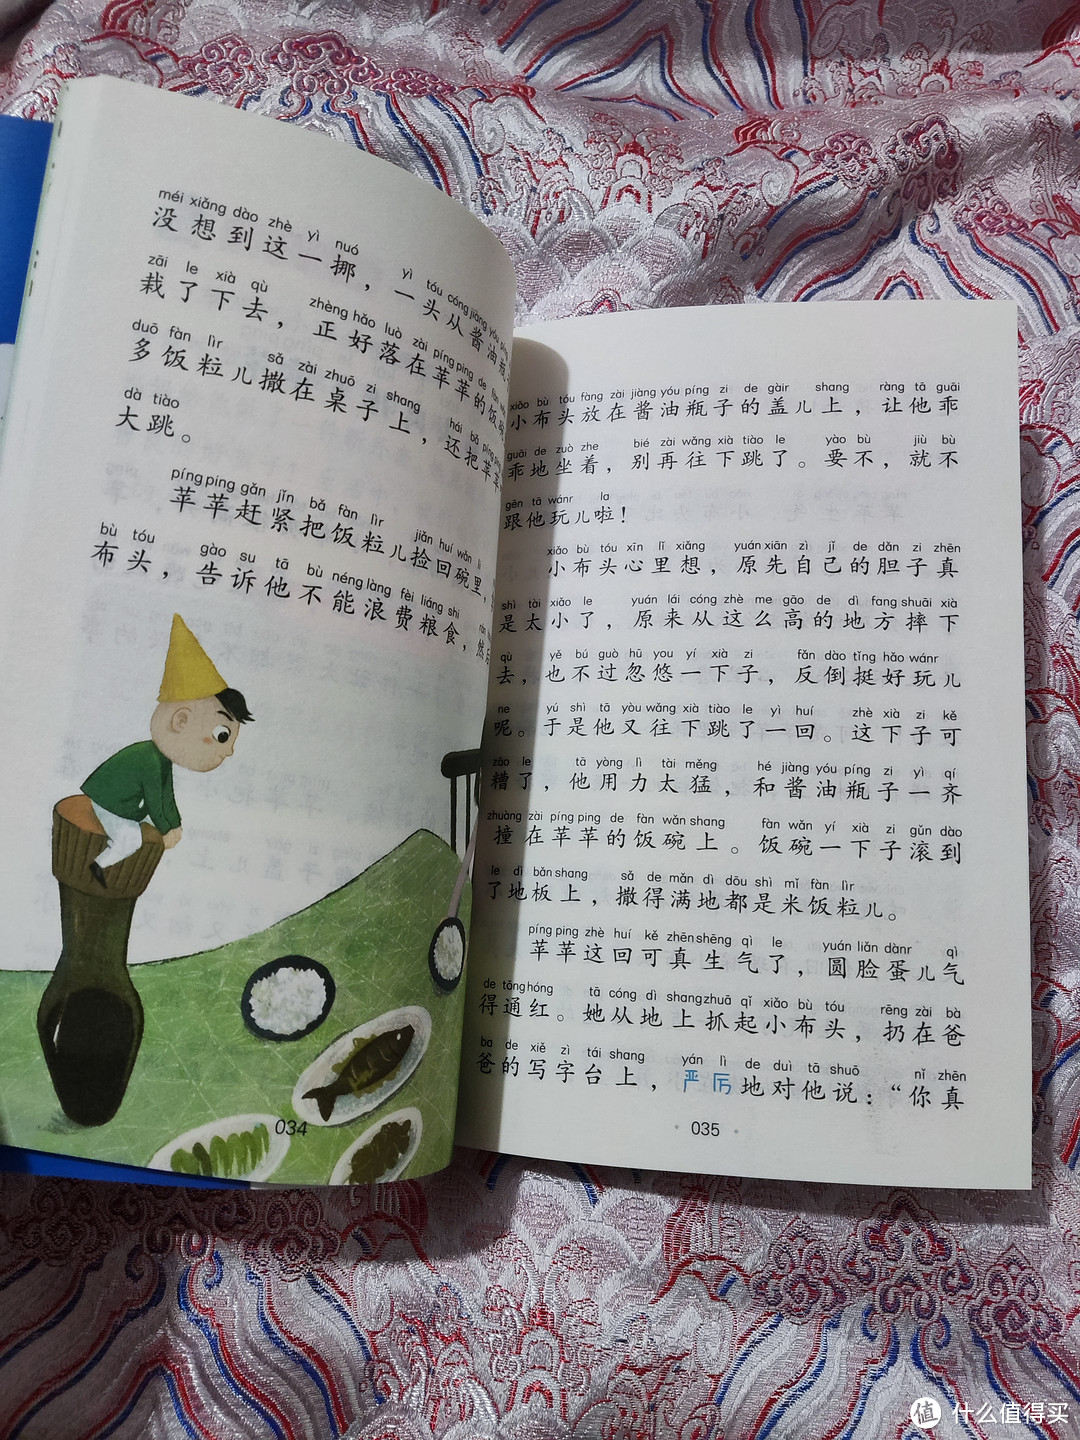 méi xiǎng dào zhè yì nuó yì tóu cóng jiàng yóu píng
没想到这一挪，一头从酱油瓶
zāi le xià qù zhèng hǎo luò zài píng ping de fàn
栽了下去，正好落在苹苹的饭碗
duō fàn lìr sǎ zài zhuō zi shang hái bǎ píng ping
多饭粒儿撒在桌子上，还把苹苹
dà tiào
大跳。
píng ping gǎn jǐn bǎ fàn lìr jiǎn huí wǎn li
苹苹赶紧把饭粒儿捡回碗里，
bù tóu gào su tā bù néng làng fèi liáng shi rán
布头，告诉他不能浪费粮食，然后
034
xiǎo bù tóu fàng zài jiàng yóu píng zi de gàir shang ràng tā guāi
小布头放在酱油瓶子的盖儿上，让他乖
guāi de zuò zhe bié zài wǎng xià tiào le yào bù jiù bù
乖地坐着，别再往下跳了。要不，就不
gēn tā wánr la
跟他玩儿啦！
xiǎo bù tóu xīn lǐ xiǎng yuán xiān zì jǐ de dǎn zi zhēn
小布头心里想，原先自己的胆子真
shì tài xiǎo le yuán lái cóng zhè me gāo de dì fang shuāi xià
是太小了，原来从这么高的地方摔下
qù yě bú guò hū you yí xià zi fǎn dào tǐng hǎo wánr
去，也不过忽悠一下子，反倒挺好玩儿
ne yú shì tā yòu wǎng xià tiào le yì huí zhè xià zi kě
呢。于是他又往下跳了一回。这下子可
zāo le tā yòng lì tài měng hé jiàng yóu píng zi yì qí
糟了，他用力太猛，和酱油瓶子一齐
zhuàng zài píng ping de fàn wǎn shang fàn wǎn yí xià zi gǔn dào
撞在苹苹的饭碗上。饭碗一下子滚到
le dì bǎn shang sǎ de mǎn dì dōu shì mǐ fàn lìr
了地板上，撒得满地都是米饭粒儿。
píng ping zhè huí kě zhēn shēng qì le yuán liǎn dànr qì
苹苹这回可真生气了，圆脸蛋儿气
de tōng hóng tā cóng dì shang zhuā qǐ xiǎo bù tóu rēng zài bà
得通红。她从地上抓起小布头，扔在爸
ba de xiě zì tái shang yán lì de duì tā shuō nǐ zhēn
爸的写字台上，严厉地对他说：“你真
035
值 什么值得买